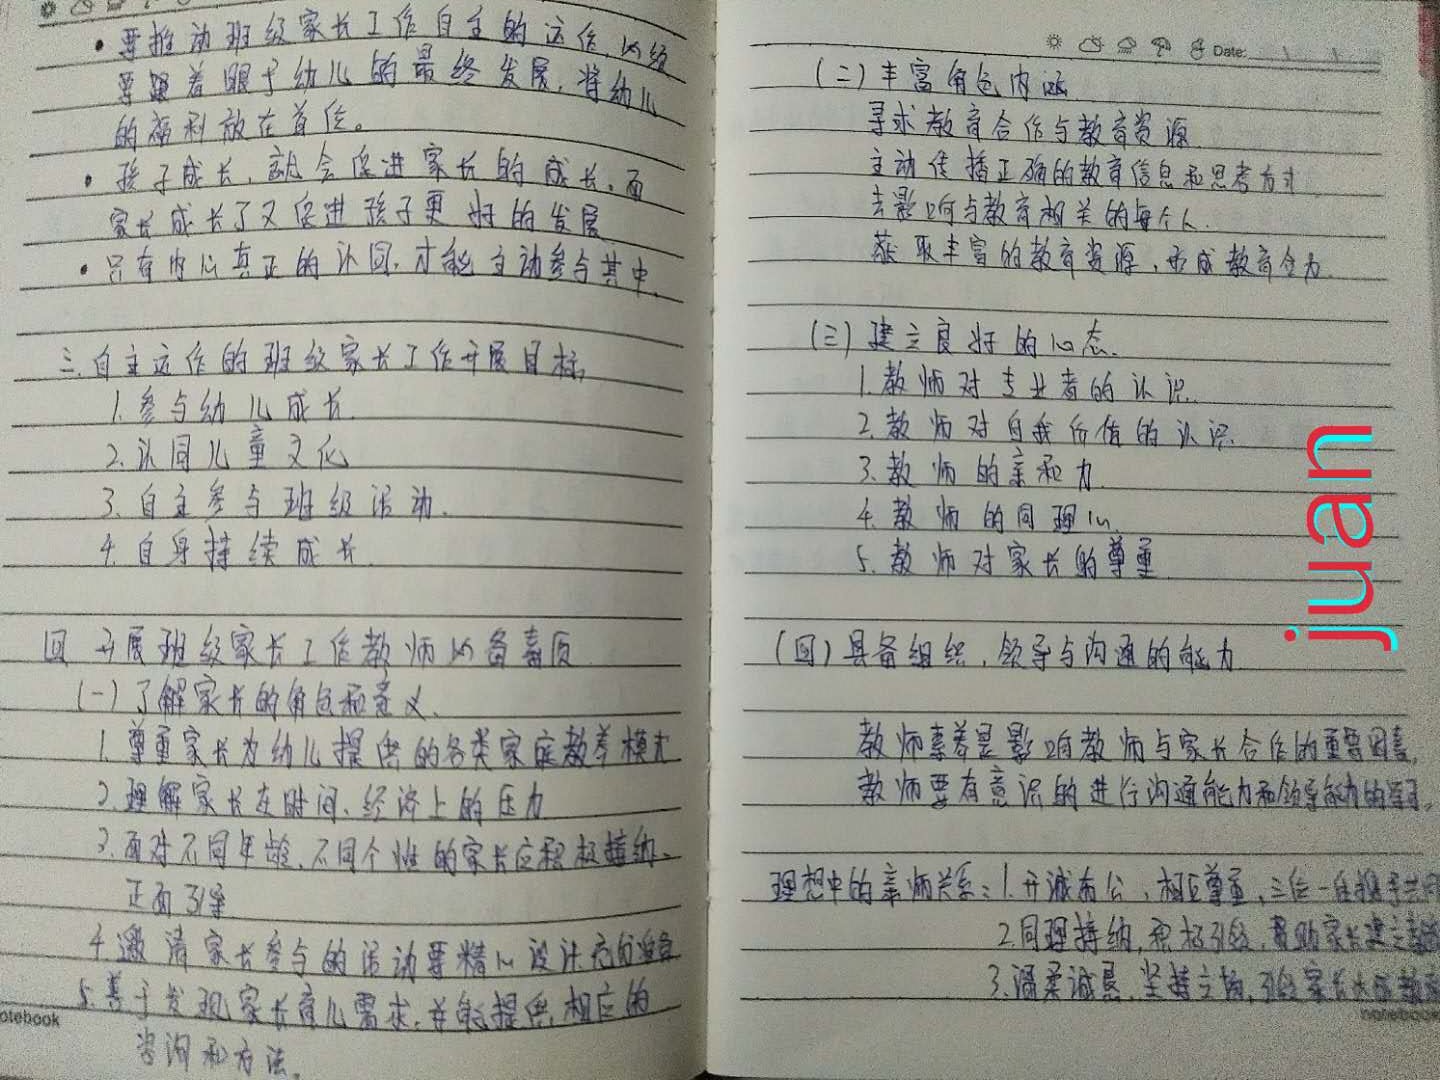 • 要推动班级家长工作自主的运作,必须
要跟着眼于幼儿的最终发展,将幼儿
的福利放在首位。
• 孩子成长,就会促进家长的成长,而
家长成长了又促进孩子更好的发展
• 只有内心真正的认同,才能主动参与其中.
三.自主运作的班级家长工作开展目标
1.参与幼儿成长.
2.认同儿童文化
3.自主参与班级活动.
4.自身持续成长.
四 开展班级家长工作教师必备素质
(一)了解家长的角色和意义.
1.尊重家长为幼儿提供的各类家庭教养模式
2.理解家长在时间、经济上的压力
3.面对不同年龄,不同个性的家长应积极接纳、
正面引导
4.邀请家长参与的活动要精心设计充分准备
5.善于发现家长育儿需求,并能提供相应的
咨询和方法。
notebook
Date:
(二)丰富角色内涵
寻求教育合作与教育资源
主动传播正确的教育信息和思考方式
去影响与教育相关的每个人.
获取丰富的教育资源,形成教育合力.
(三)建立良好的心态.
1.教师对专业者的认识.
2.教师对自我价值的认识.
3.教师的亲和力
4.教师的同理心.
5.教师对家长的尊重
(四)具备组织,领导与沟通的能力
教师素养是影响教师与家长合作的重要因素,
教师要有意识的进行沟通能力和领导能力的学习。
理想中的亲师关系:1.开诚布公,相互尊重,三位一体携手共同
2.同理接纳,积极引领,帮助家长建立
3.温柔诚恳,坚持立场,引领家长
notebook
juan